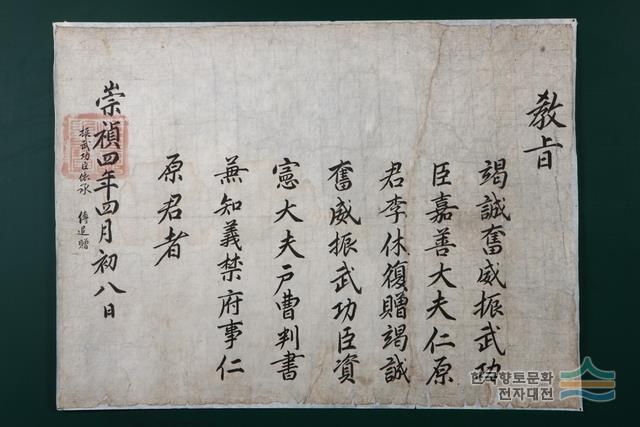 敎旨
竭誠奮威振武功
臣嘉善大夫仁原
君李休復贈竭誠
奮威振武功臣資
憲大夫戶曹判書
兼知義禁府事仁
原君者
崇禎四年四月初八日
振武功臣依承 傳追贈
한국향토문화
전자대전